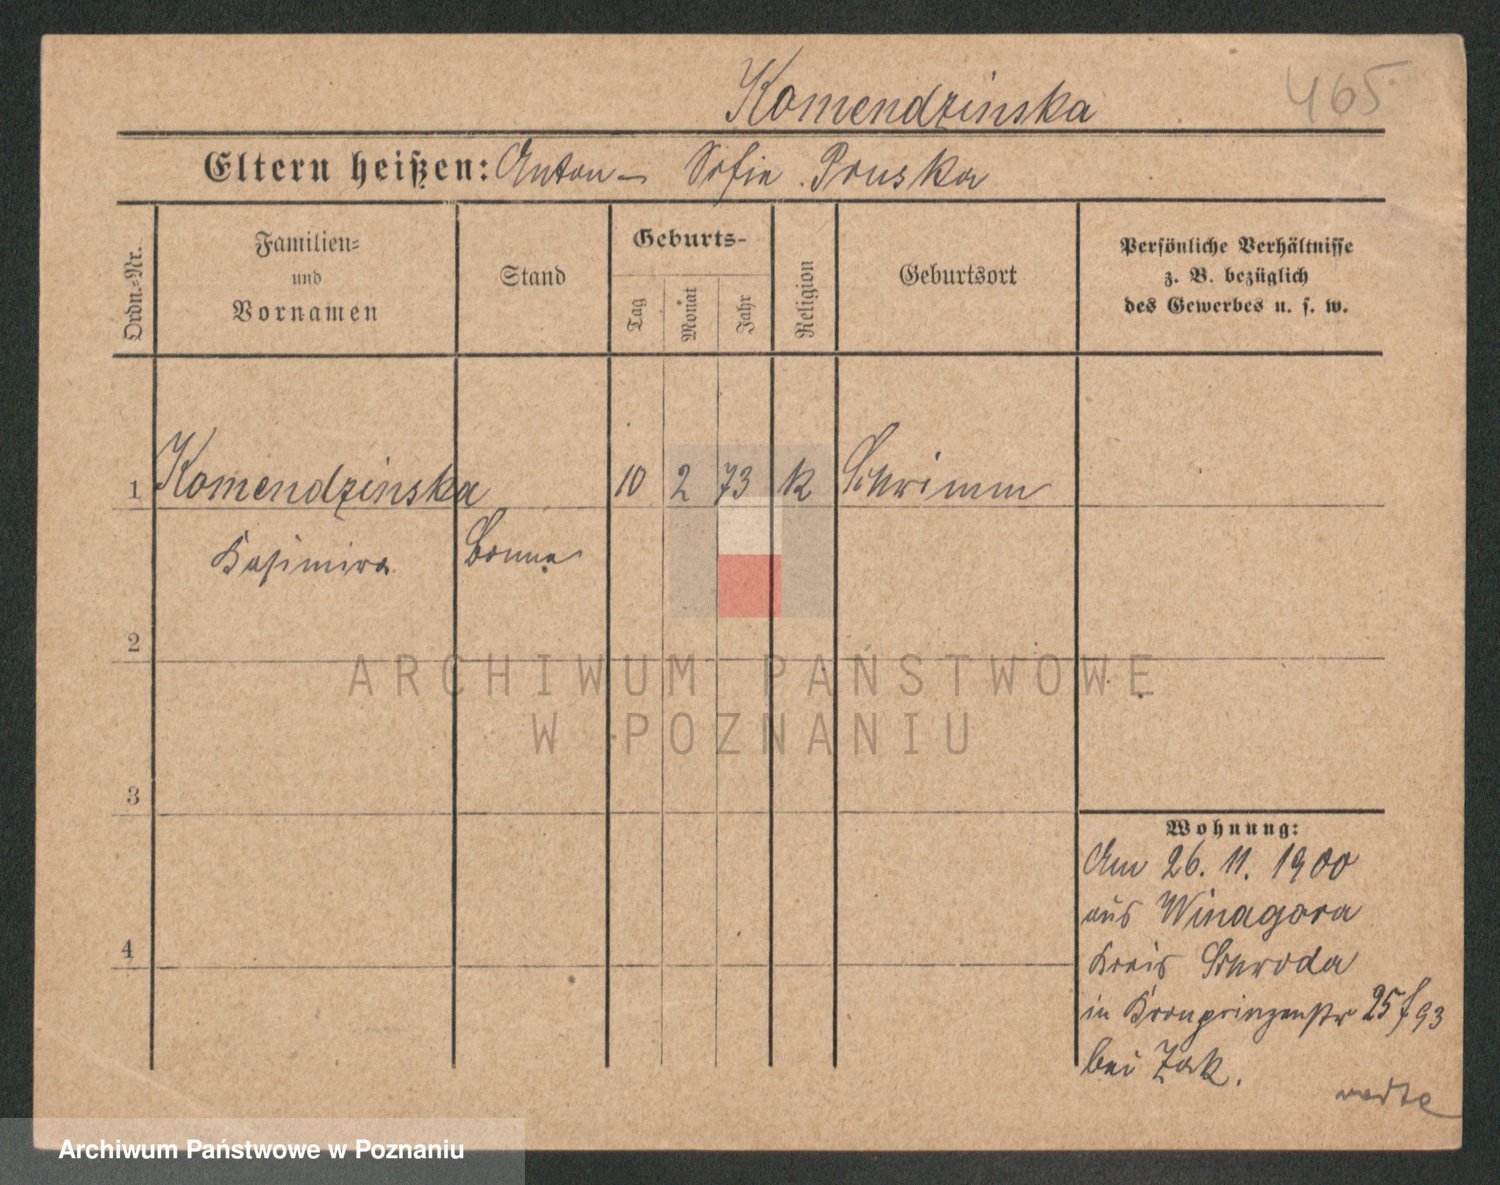 Komendzinska
465
Eltern heißen: Anton – Sofie Pruska
Ordn.=Nr.
Familien=
und
Vornamen
Stand
Geburts-
Tag
Monat
Jahr
Religion
Geburtsort
Persönliche Verhältnisse
z. B. bezüglich
des Gewerbes u. s. w.
1 Komendzinska 10 2 73 k Schrimm
Kasimira Bonne
2
ARCHIWUM PAŃSTWOWE
W POZNANIU
3
Wohnung:
Am 26. 11. 1900
aus Winagora
4
Kreis Schroda
in Kronprinzenstr 25 f 93
bei Zak.
Archiwum Państwowe w Poznaniu